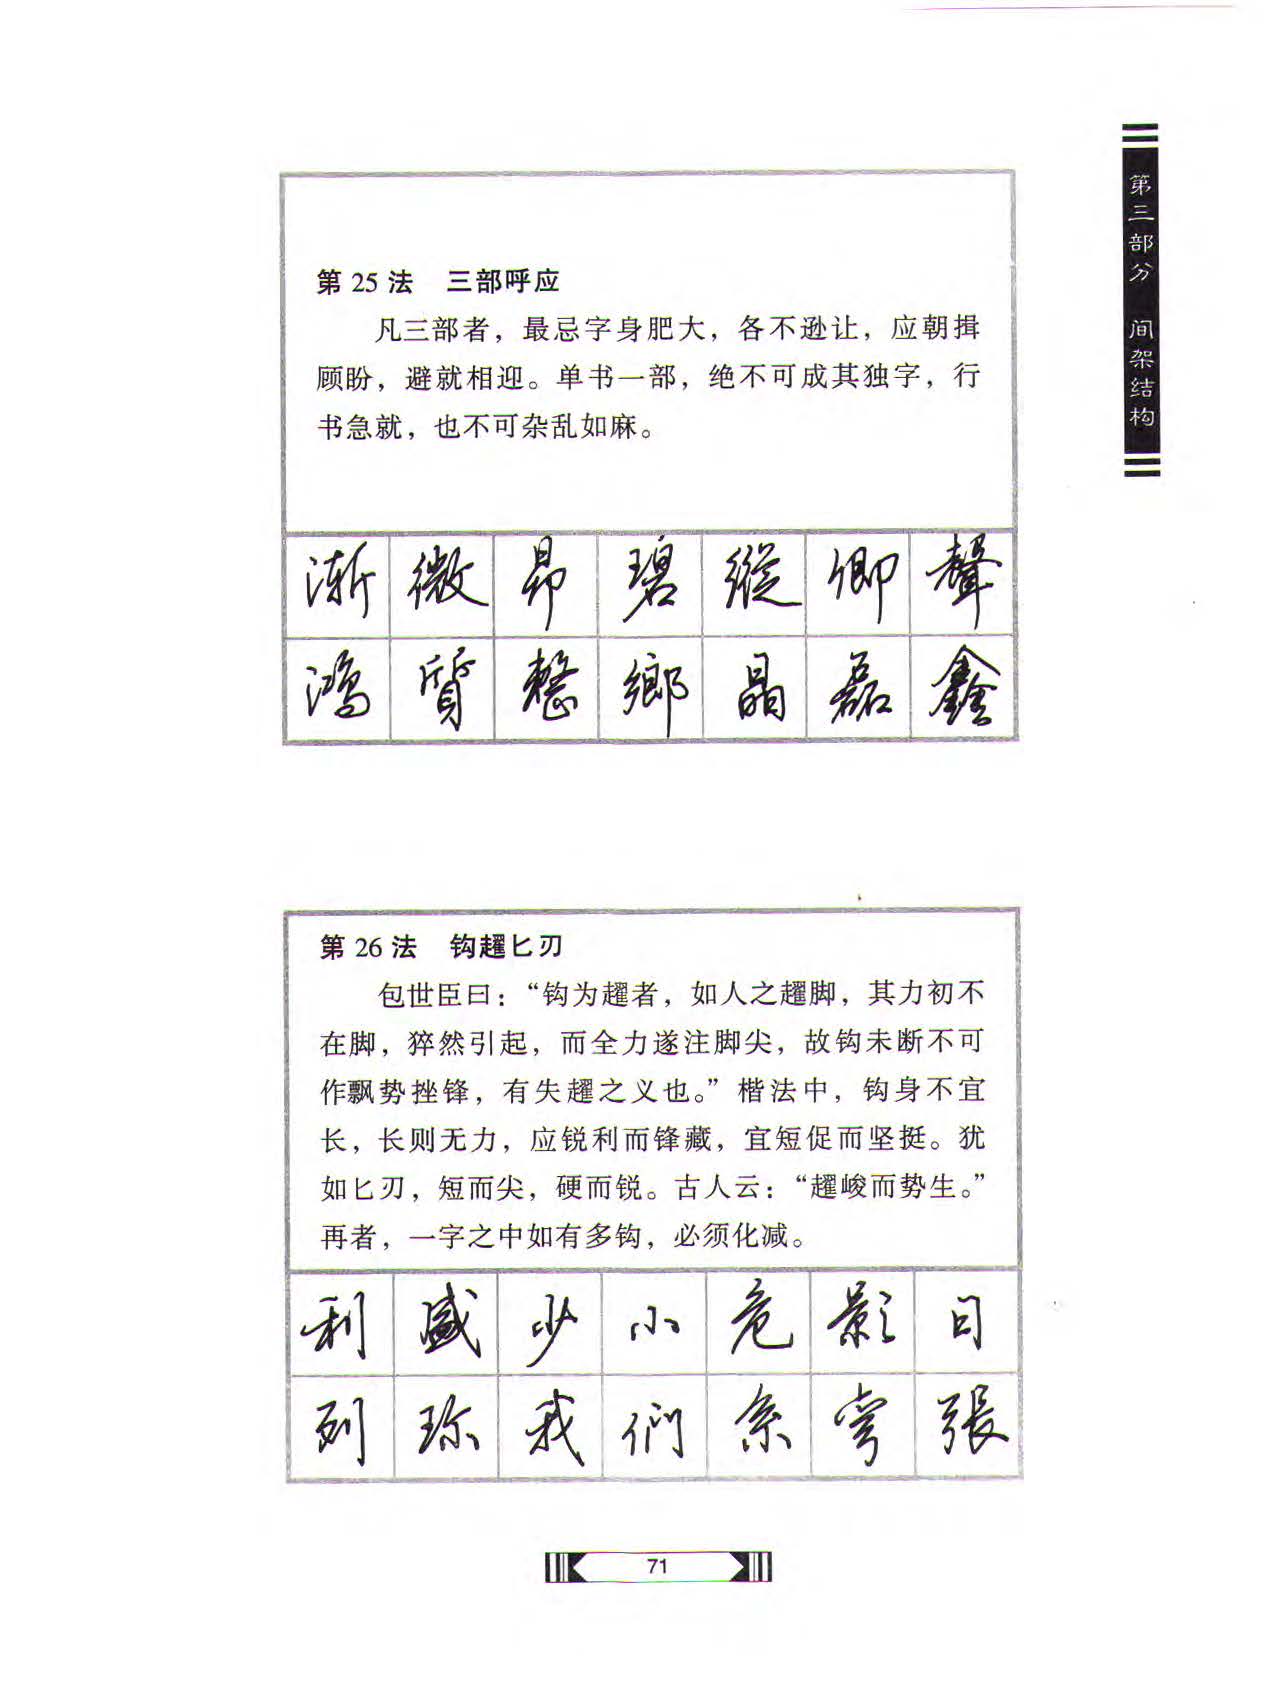 第三部分 间架结构
第 25 法 三部呼应
凡三部者，最忌字身肥大，各不逊让，应朝揖
顾盼，避就相迎。单书一部，绝不可成其独字，行
书急就，也不可杂乱如麻。
渐 微 昂 碧 縱 卿 聲
鴻 質 整 鄉 晶 磊 鑫
第 26 法 钩趯匕刃
包世臣曰：“钩为趯者，如人之趯脚，其力初不
在脚，猝然引起，而全力遂注脚尖，故钩未断不可
作飘势挫锋，有失趯之义也。”楷法中，钩身不宜
长，长则无力，应锐利而锋藏，宜短促而坚挺。犹
如匕刃，短而尖，硬而锐。古人云：“趯峻而势生。”
再者，一字之中如有多钩，必须化减。
利 盛 少 小 危 影 日
列 珎 我 們 系 弯 張
71